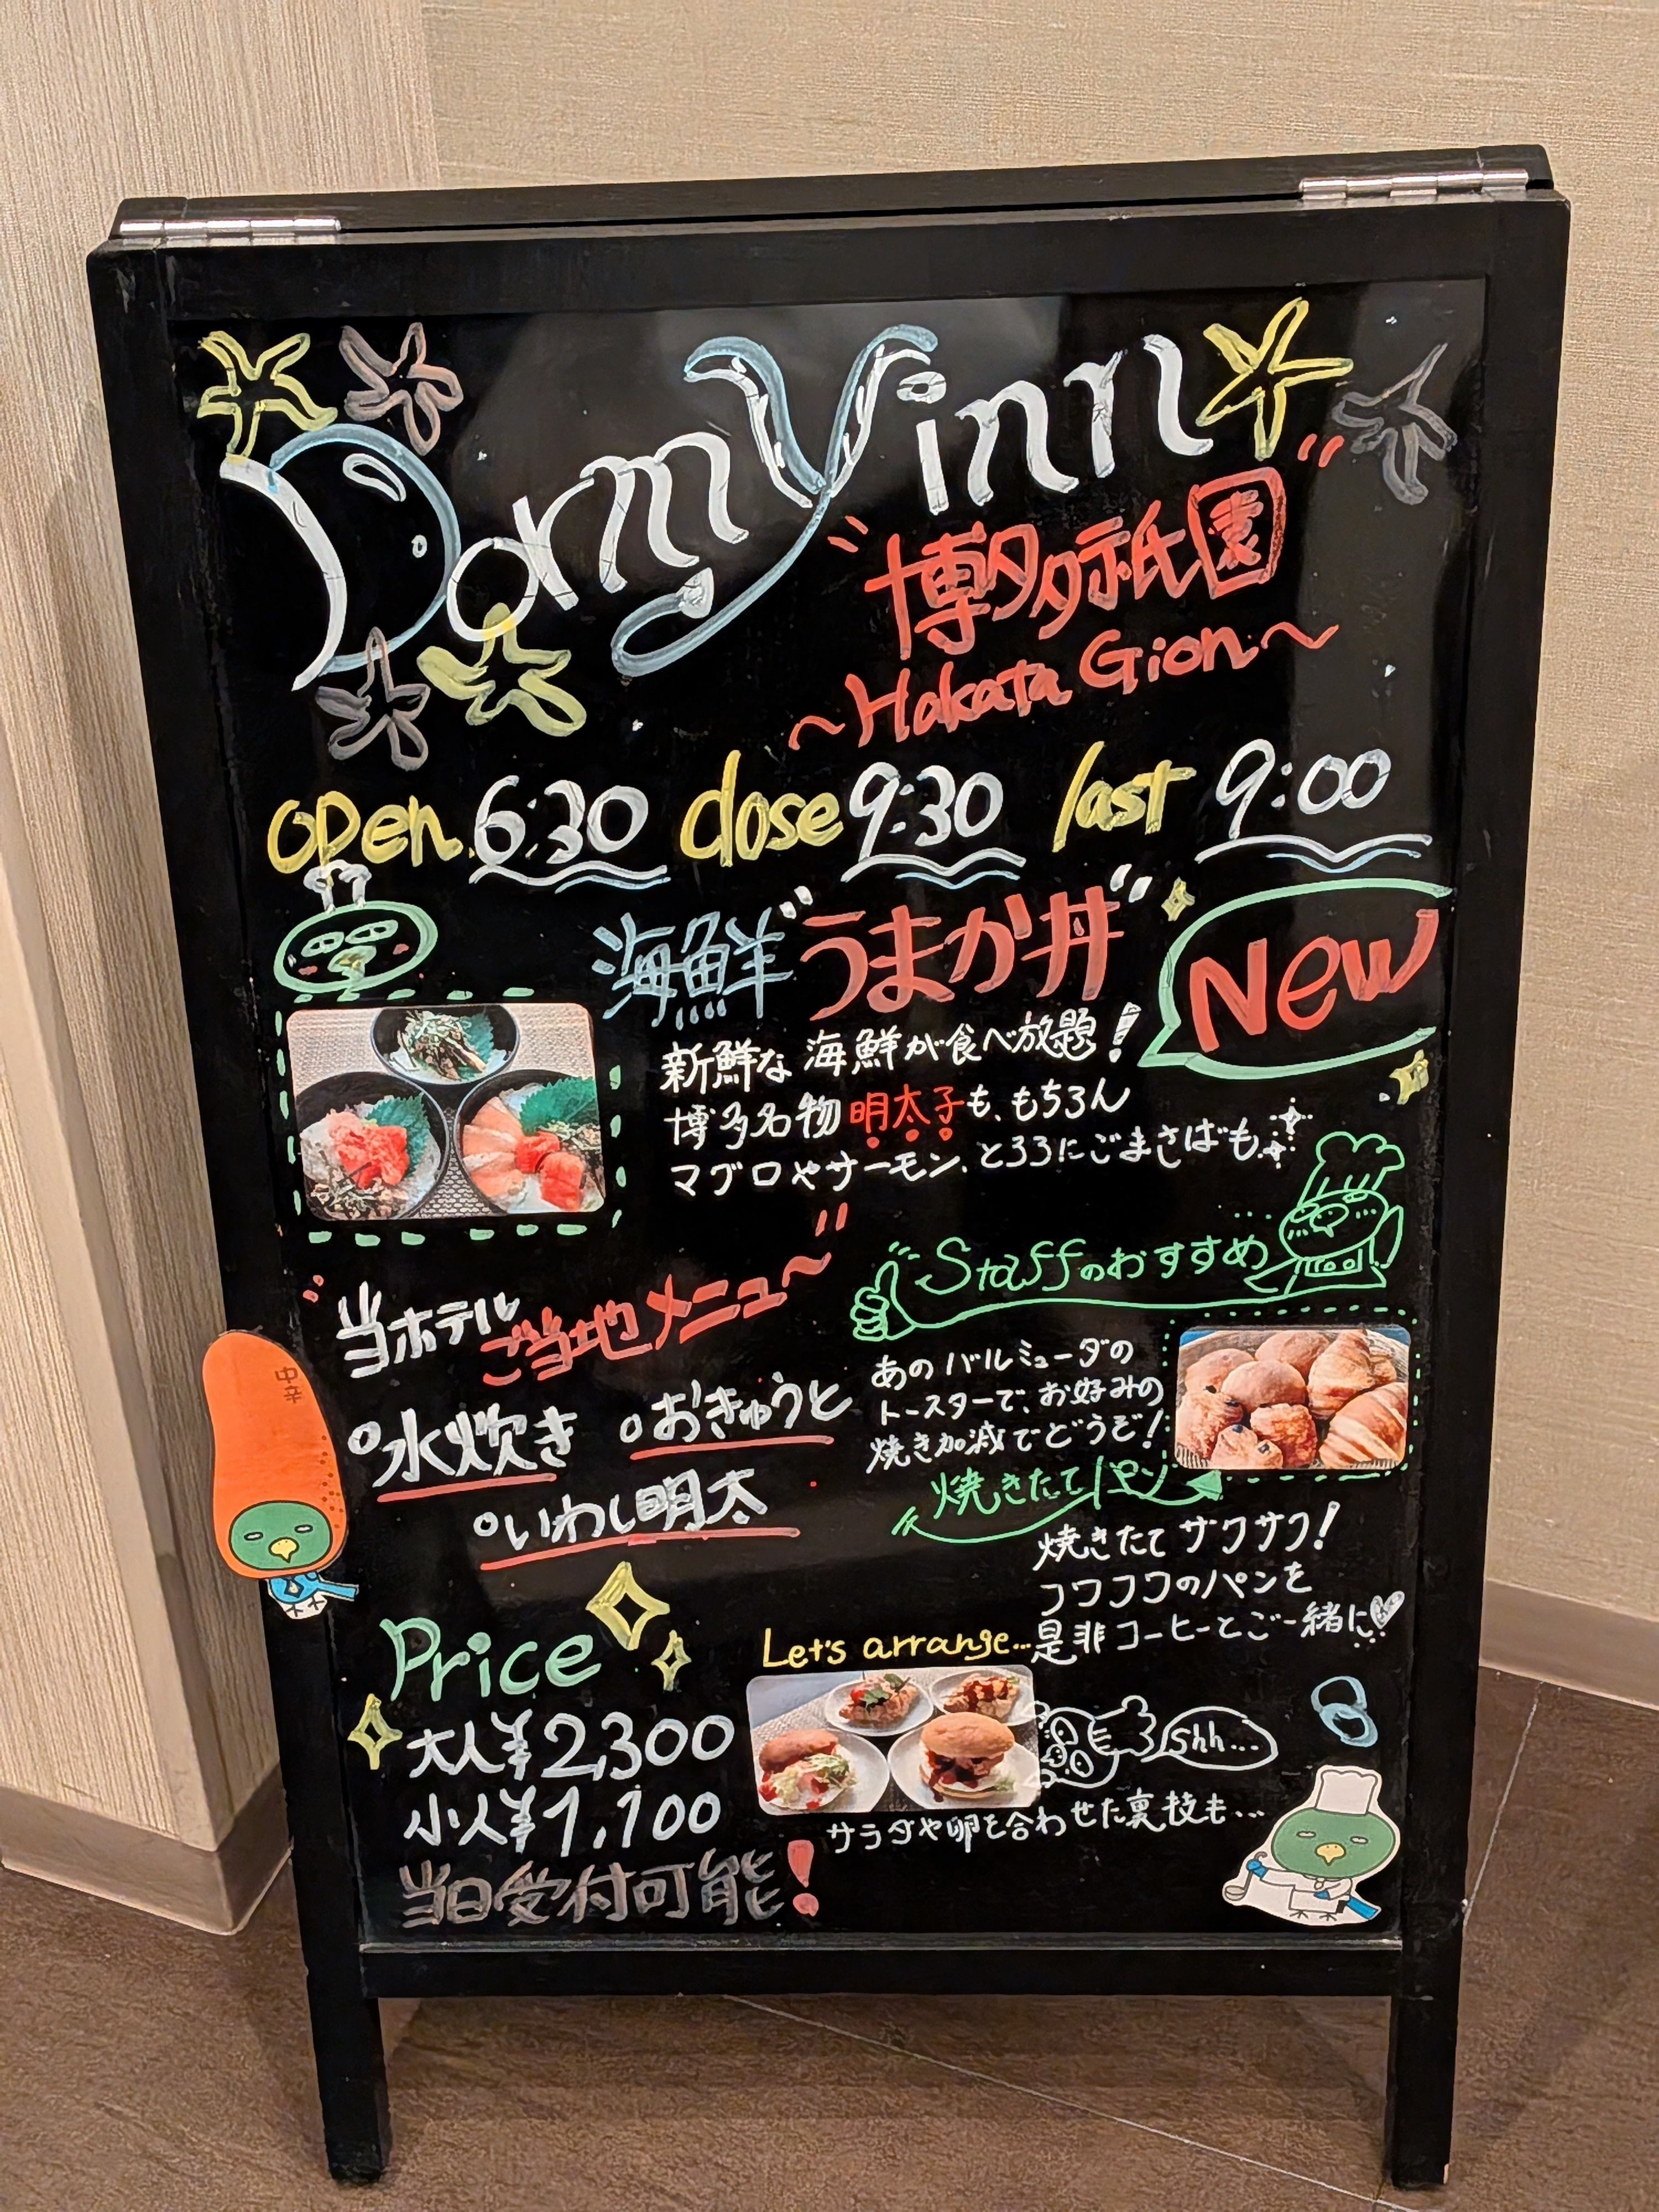 Dormy inn
博多祇園
~Hakata Gion~
open 6:30 close 9:30 last 9:00
海鮮"うまか丼"
New
新鮮な海鮮が食べ放題!
博多名物明太子も、もちろん
マグロやサーモン、とろろにごまさばも
当ホテル
ご当地メニュー
水炊き
おきゅうと
いわし明太
中辛
Staffのおすすめ
あのバルミューダの
トースターで、お好みの
焼き加減でどうぞ!
焼きたてパン
焼きたてサクサク!
フワフワのパンを
是非コーヒーとご一緒に
Price
大人¥2,300
小人¥1,100
当日受付可能!
Let's arrange...
shh...
サラダや卵を合わせた裏技も...